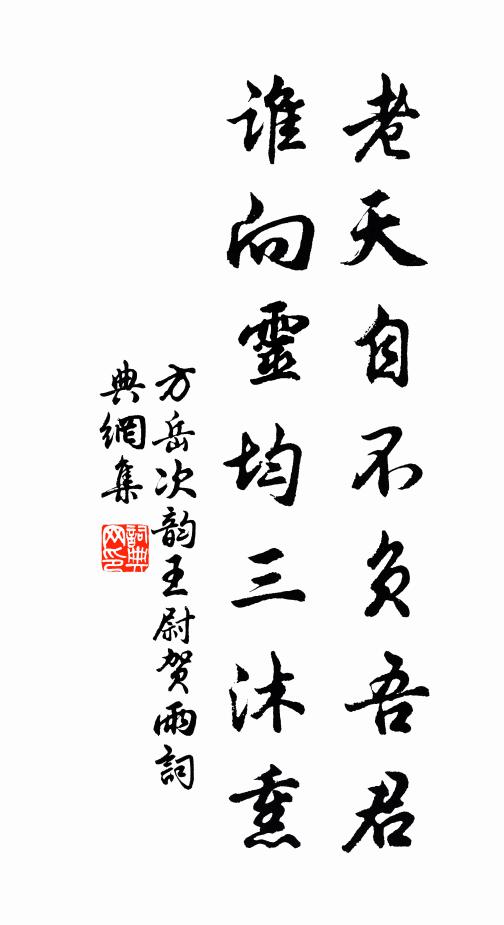 老天自不负吾君
谁向靈均三沐熏
方岳次韵王尉贺雨詞
典網集
詞典网印